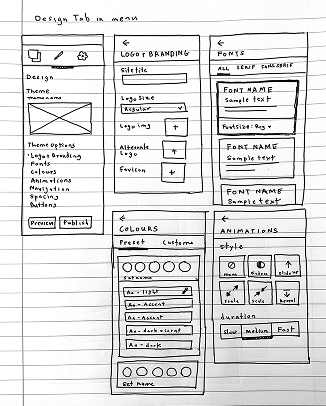 Design Tab in menu
Design
Theme
Theme name
Theme Options
• Logo & Branding
Fonts
Colours
Animations
Navigation
Spacing
Buttons
Preview
Publish
←
LOGO & BRANDING
Site title
Logo Size
Regular
Logo img
+
Alternate
Logo
+
Favicon
+
←
FONTS
ALL SERIF SANS SERIF
FONT NAME
Sample text
Font size: Reg
FONT NAME
Sample text
FONT NAME
Sample text
←
COLOURS
Preset Custom
Set name
Aa - light
Aa - Accent
Aa - Accent
Aa - dark accent
Aa - dark
Set name
←
ANIMATIONS
style
None
Scale
Scale
Reveal
duration
Slow medium Fast